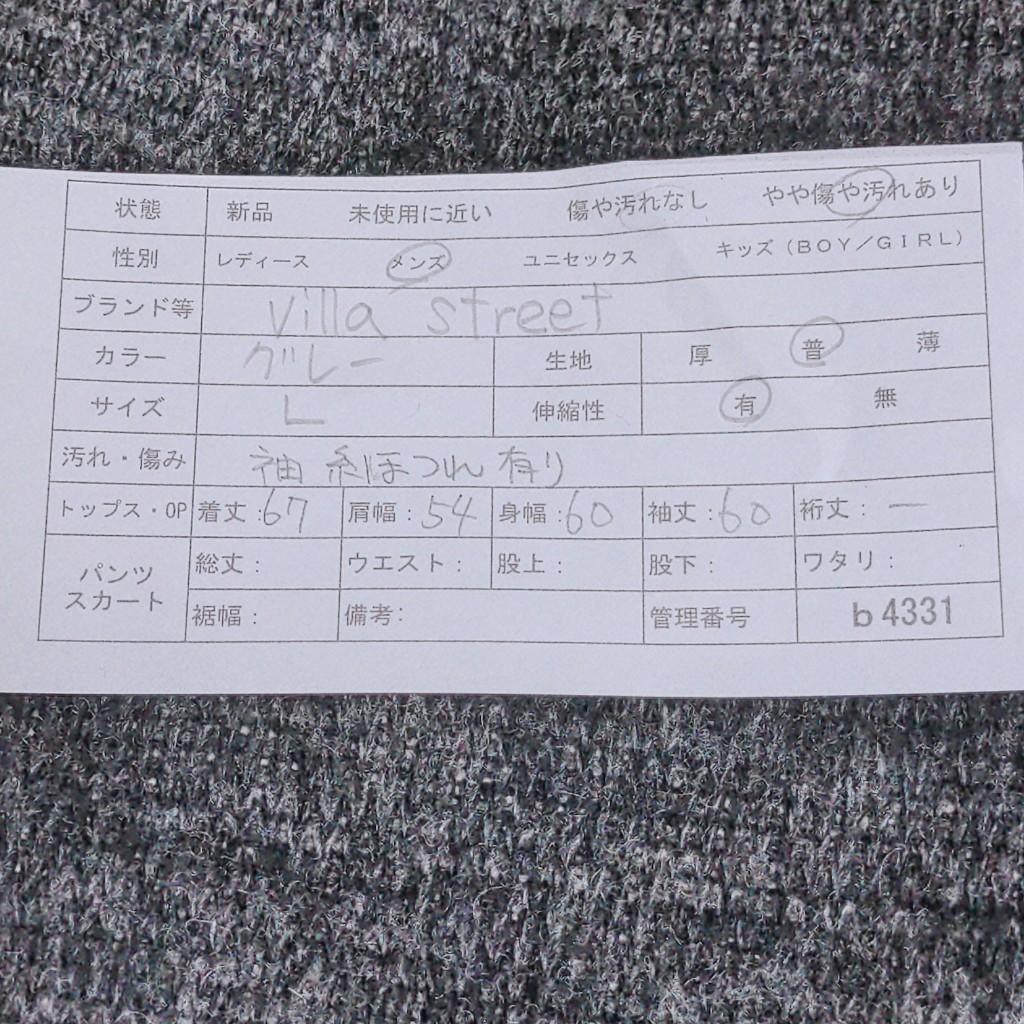 状態 新品 未使用に近い 傷や汚れなし やや傷や汚れあり
性別 レディース メンズ ユニセックス キッズ（BOY／GIRL）
ブランド等 villa street
カラー グレー 生地 厚 普 薄
サイズ L 伸縮性 有 無
汚れ・傷み 袖 糸ほつれ 有り
トップス・OP 着丈：67 肩幅：54 身幅：60 袖丈：60 裄丈：ー
パンツ スカート 総丈： ウエスト： 股上： 股下： ワタリ：
裾幅： 備考： 管理番号 b4331